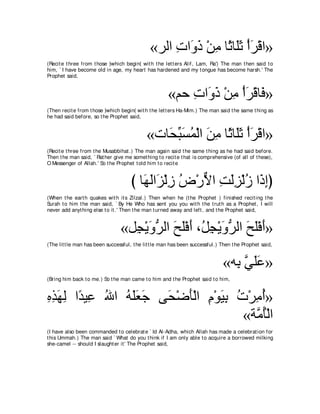 «اقْرَأْ ثَلَاثًا مِنْ ذَوَاتِ الر»
(Recite three from those )which begin( with the letters Alif, Lam, Ra') The man then said to
him, `I have become old in age, my heart has hardened and my tongue has become harsh.' The
Prophet said,
«فَاقْرَأْ مِنْ ذَوَاتِ حم»
(Then recite from those )which begin( with the letters Ha-Mim.) The man said the same thing as
he had said before, so the Prophet said,
«اقْرَأْ ثَلَاثًا مِنَ الْمُسَبِّحَات»
(Recite three from the Musabbihat.) The man again said the same thing as he had said before.
Then the man said, `Rather give me something to recite that is comprehensive (of all of these),
O Messenger of Allah.' So the Prophet told him to recite
(إِذَا زُلْزِلَتِ الاٌّرْضُ زِلْزَالَهَا )
(When the earth quakes with its Zilzal.) Then when he (the Prophet ) finished reciting the
Surah to him the man said, `By He Who has sent you you with the truth as a Prophet, I will
never add anything else to it.' Then the man turned away and left, and the Prophet said,
«أَفْلَحَ الرُّوَيْجِلُ، أَفْلَحَ الرُّوَيْجِل»
(The little man has been successful, the little man has been successful.) Then the Prophet said,
«عَلَيَّ بِه»
(Bring him back to me.) So the man came to him and the Prophet said to him,
«أُمِرْتُ بِيَوْمِ الْأَضْحَى جَعَلَهُ اللهُ عِيدًا لِهَذِهِ
الْأُمَّة»
(I have also been commanded to celebrate `Id Al-Adha, which Allah has made a celebration for
this Ummah.) The man said `What do you think if I am only able to acquire a borrowed milking
she-camel -- should I slaughter it' The Prophet said,